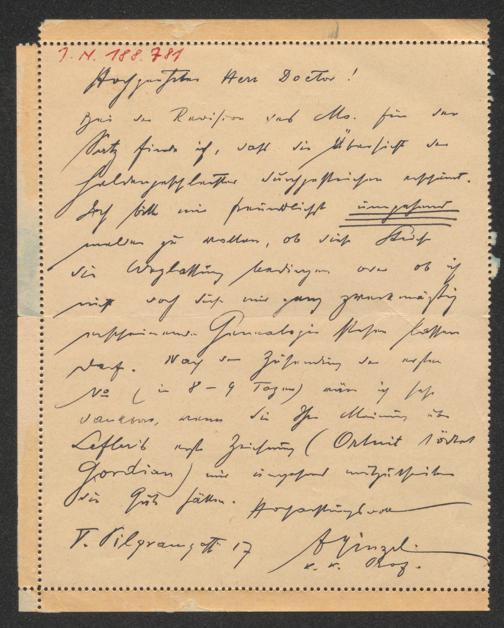 J. N. 188.781
Hochgeehrter Herr Doctor!
Bei der Revision des Ms. für den
Satz finde ich, daß die Übersicht der
Heldengeschlechter durchgestrichen erscheint.
Ich bitte mir freundlichst umgehend
melden zu wollen, ob dieser Strich
die Weglassung bedeuten oder ob ich
nicht doch diese mir ganz zweckmäßig
erscheinende Genealogie stehen lassen
darf. Nach der Zusendung der ersten
No (in 8–9 Tagen) wäre ich sehr
dankbar, wenn Sie Ihre Meinung über
Lefler's erste Zeichnung (Ortnit tödtet
Gordian) mir umgehend mitzutheilen
die Güte hätten. Hochachtungsvoll
V. Pilgramgasse 17
k. k. Prof.